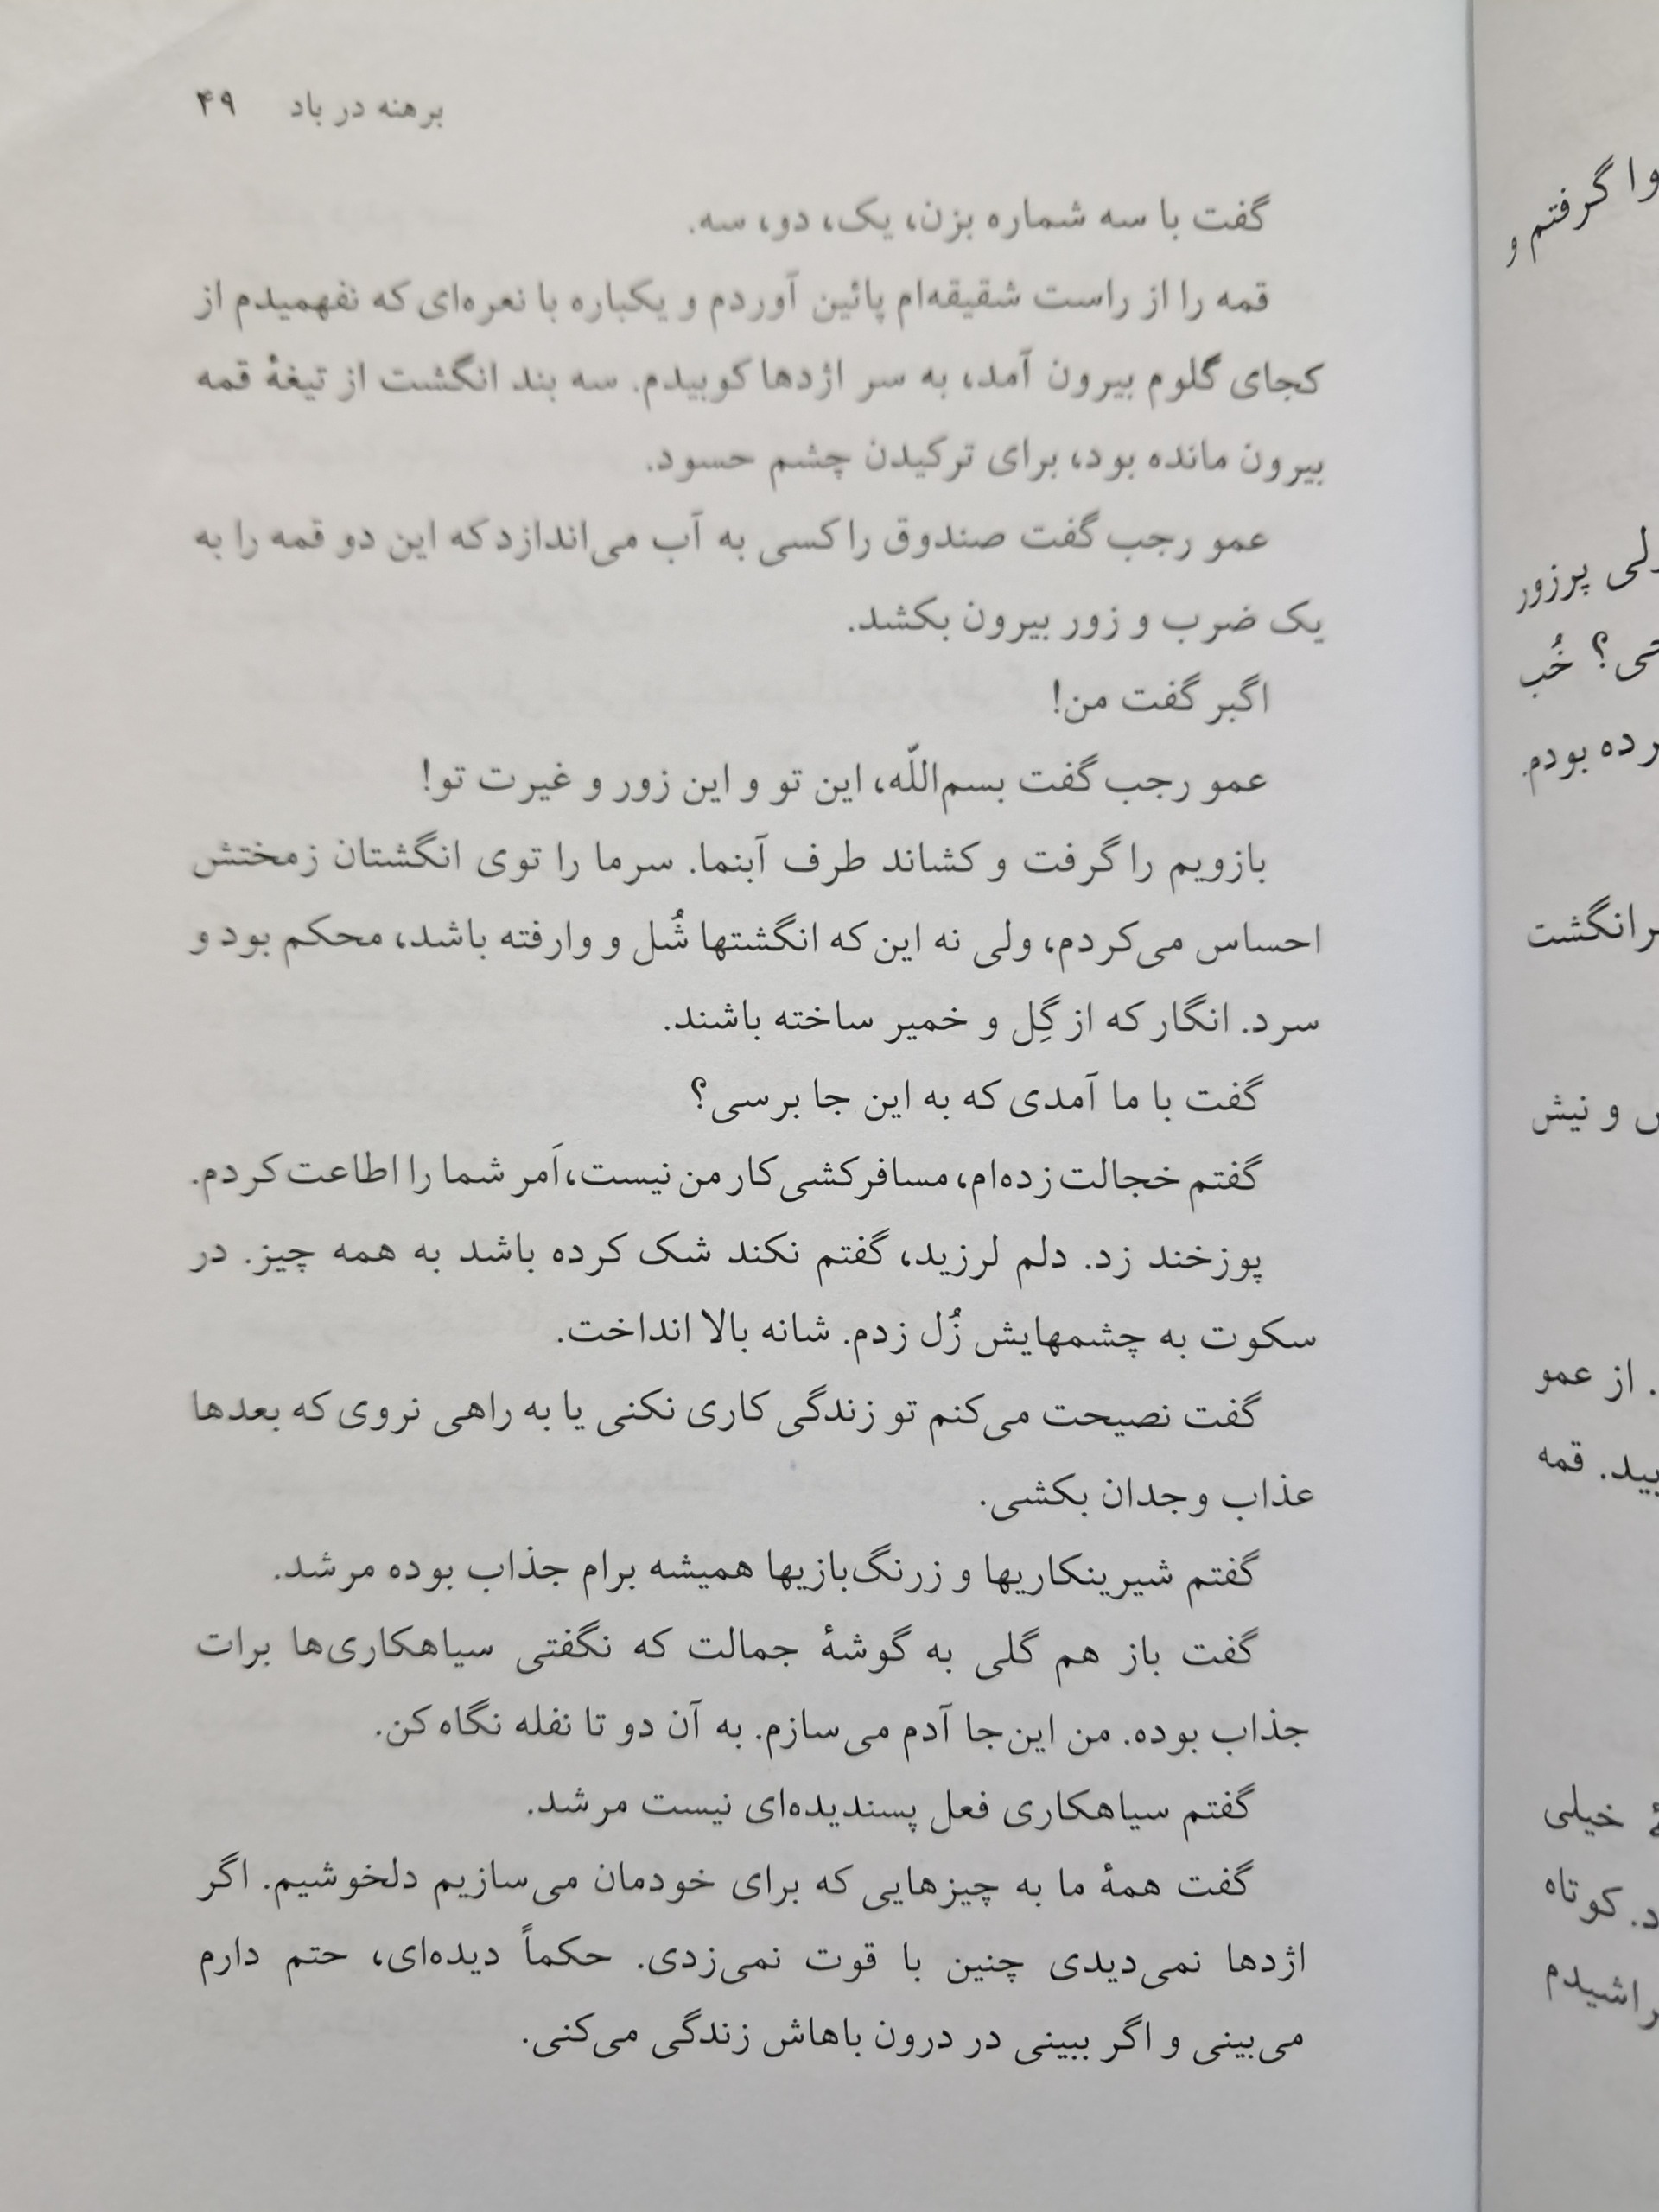 برهنه در باد ۴۹
گفت با سه شماره بزن، یک، دو، سه.
قمه را از راست شقیقه‌ام پائین آوردم و یکباره با نعره‌ای که نفهمیدم از
کجای گلوم بیرون آمد، به سر اژدها کوبیدم. سه بند انگشت از تیغهٔ قمه
بیرون مانده بود، برای ترکیدن چشم حسود.
عمو رجب گفت صندوق را کسی به آب می‌اندازد که این دو قمه را به
یک ضرب و زور بیرون بکشد.
اگبر گفت من!
عمو رجب گفت بسم‌اللّه، این تو و این زور و غیرت تو!
بازویم را گرفت و کشاند طرف آبنما. سرما را توی انگشتان زمختش
احساس می‌کردم، ولی نه این که انگشتها شُل و وارفته باشد، محکم بود و
سرد. انگار که از گِل و خمیر ساخته باشند.
گفت با ما آمدی که به این جا برسی؟
گفتم خجالت زده‌ام، مسافرکشی کار من نیست، اَمر شما را اطاعت کردم.
پوزخند زد. دلم لرزید، گفتم نکند شک کرده باشد به همه چیز. در
سکوت به چشمهایش زُل زدم. شانه بالا انداخت.
گفت نصیحت می‌کنم تو زندگی کاری نکنی یا به راهی نروی که بعدها
عذاب وجدان بکشی.
گفتم شیرینکاریها و زرنگ‌بازیها همیشه برام جذاب بوده مرشد.
گفت باز هم گلی به گوشهٔ جمالت که نگفتی سیاهکاری‌ها برات
جذاب بوده. من این‌جا آدم می‌سازم. به آن دو تا نفله نگاه کن.
گفتم سیاهکاری فعل پسندیده‌ای نیست مرشد.
گفت همهٔ ما به چیزهایی که برای خودمان می‌سازیم دلخوشیم. اگر
اژدها نمی‌دیدی چنین با قوت نمی‌زدی. حکماً دیده‌ای، حتم دارم
می‌بینی و اگر ببینی در درون باهاش زندگی می‌کنی.
وا گرفتم و
پرزور
خُب
بودم.
و نیش
. از عمو
قمه
خیلی
کوتاه